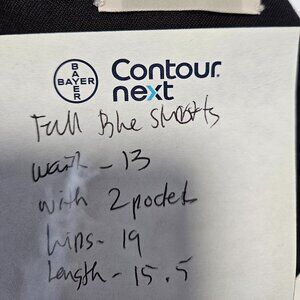 BAYER
BAYER
Contour
next
Full Blue Shorts
waist - 13
with 2 pocket
hips - 19
Length - 15.5